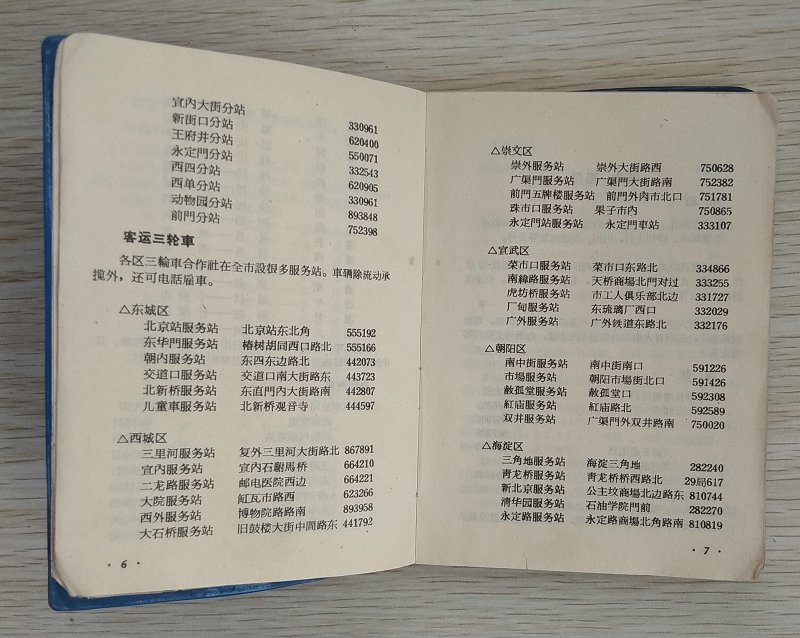 宣内大街分站 330961
新街口分站 620400
王府井分站 550071
永定門分站 332543
西四分站 620905
西单分站 330961
动物园分站 893848
前門分站 752398
客运三轮車
各区三輪車合作社在全市設很多服务站。車辆除流动承
攬外，还可电話雇車。
△东城区
北京站服务站 北京站东北角 555192
东华門服务站 椿树胡同西口路北 555166
朝内服务站 东四东边路北 442073
交道口服务站 交道口南大街路东 443723
北新桥服务站 东直門內大街路南 442807
儿童車服务站 北新桥观音寺 444597
△西城区
三里河服务站 复外三里河大街路北 867891
宣内服务站 宣内石駙馬桥 664210
二龙路服务站 邮电医院西边 664221
大院服务站 缸瓦市路西 623266
西外服务站 博物院路路南 893958
大石桥服务站 旧鼓楼大街中間路东 441792
· 6 ·
△崇文区
崇外服务站 崇外大街路西 750628
广渠門服务站 广渠門大街路南 752382
前門五牌楼服务站 前門外肉市北口 751781
珠市口服务站 果子市内 750865
永定門站服务站 永定門車站 333107
△宣武区
菜市口服务站 菜市口东路北 334866
南緯路服务站 天桥商場北門对过 333255
虎坊桥服务站 市工人俱乐部北边 331727
厂甸服务站 东琉璃厂西口 332029
广外服务站 广外铁道东路北 332176
△朝阳区
南中街服务站 南中街南口 591226
市場服务站 朝阳市場街北口 591426
赦孤堂服务站 赦孤堂口 592308
紅庙服务站 紅庙路北 592589
双井服务站 广渠門外双井路南 750020
△海淀区
三角地服务站 海淀三角地 282240
青龙桥服务站 青龙桥桥西路北 29局617
新北京服务站 公主坟商場北边路东 810744
清华园服务站 石油学院門前 282270
永定路服务站 永定路商場北角路南 810819
· 7 ·